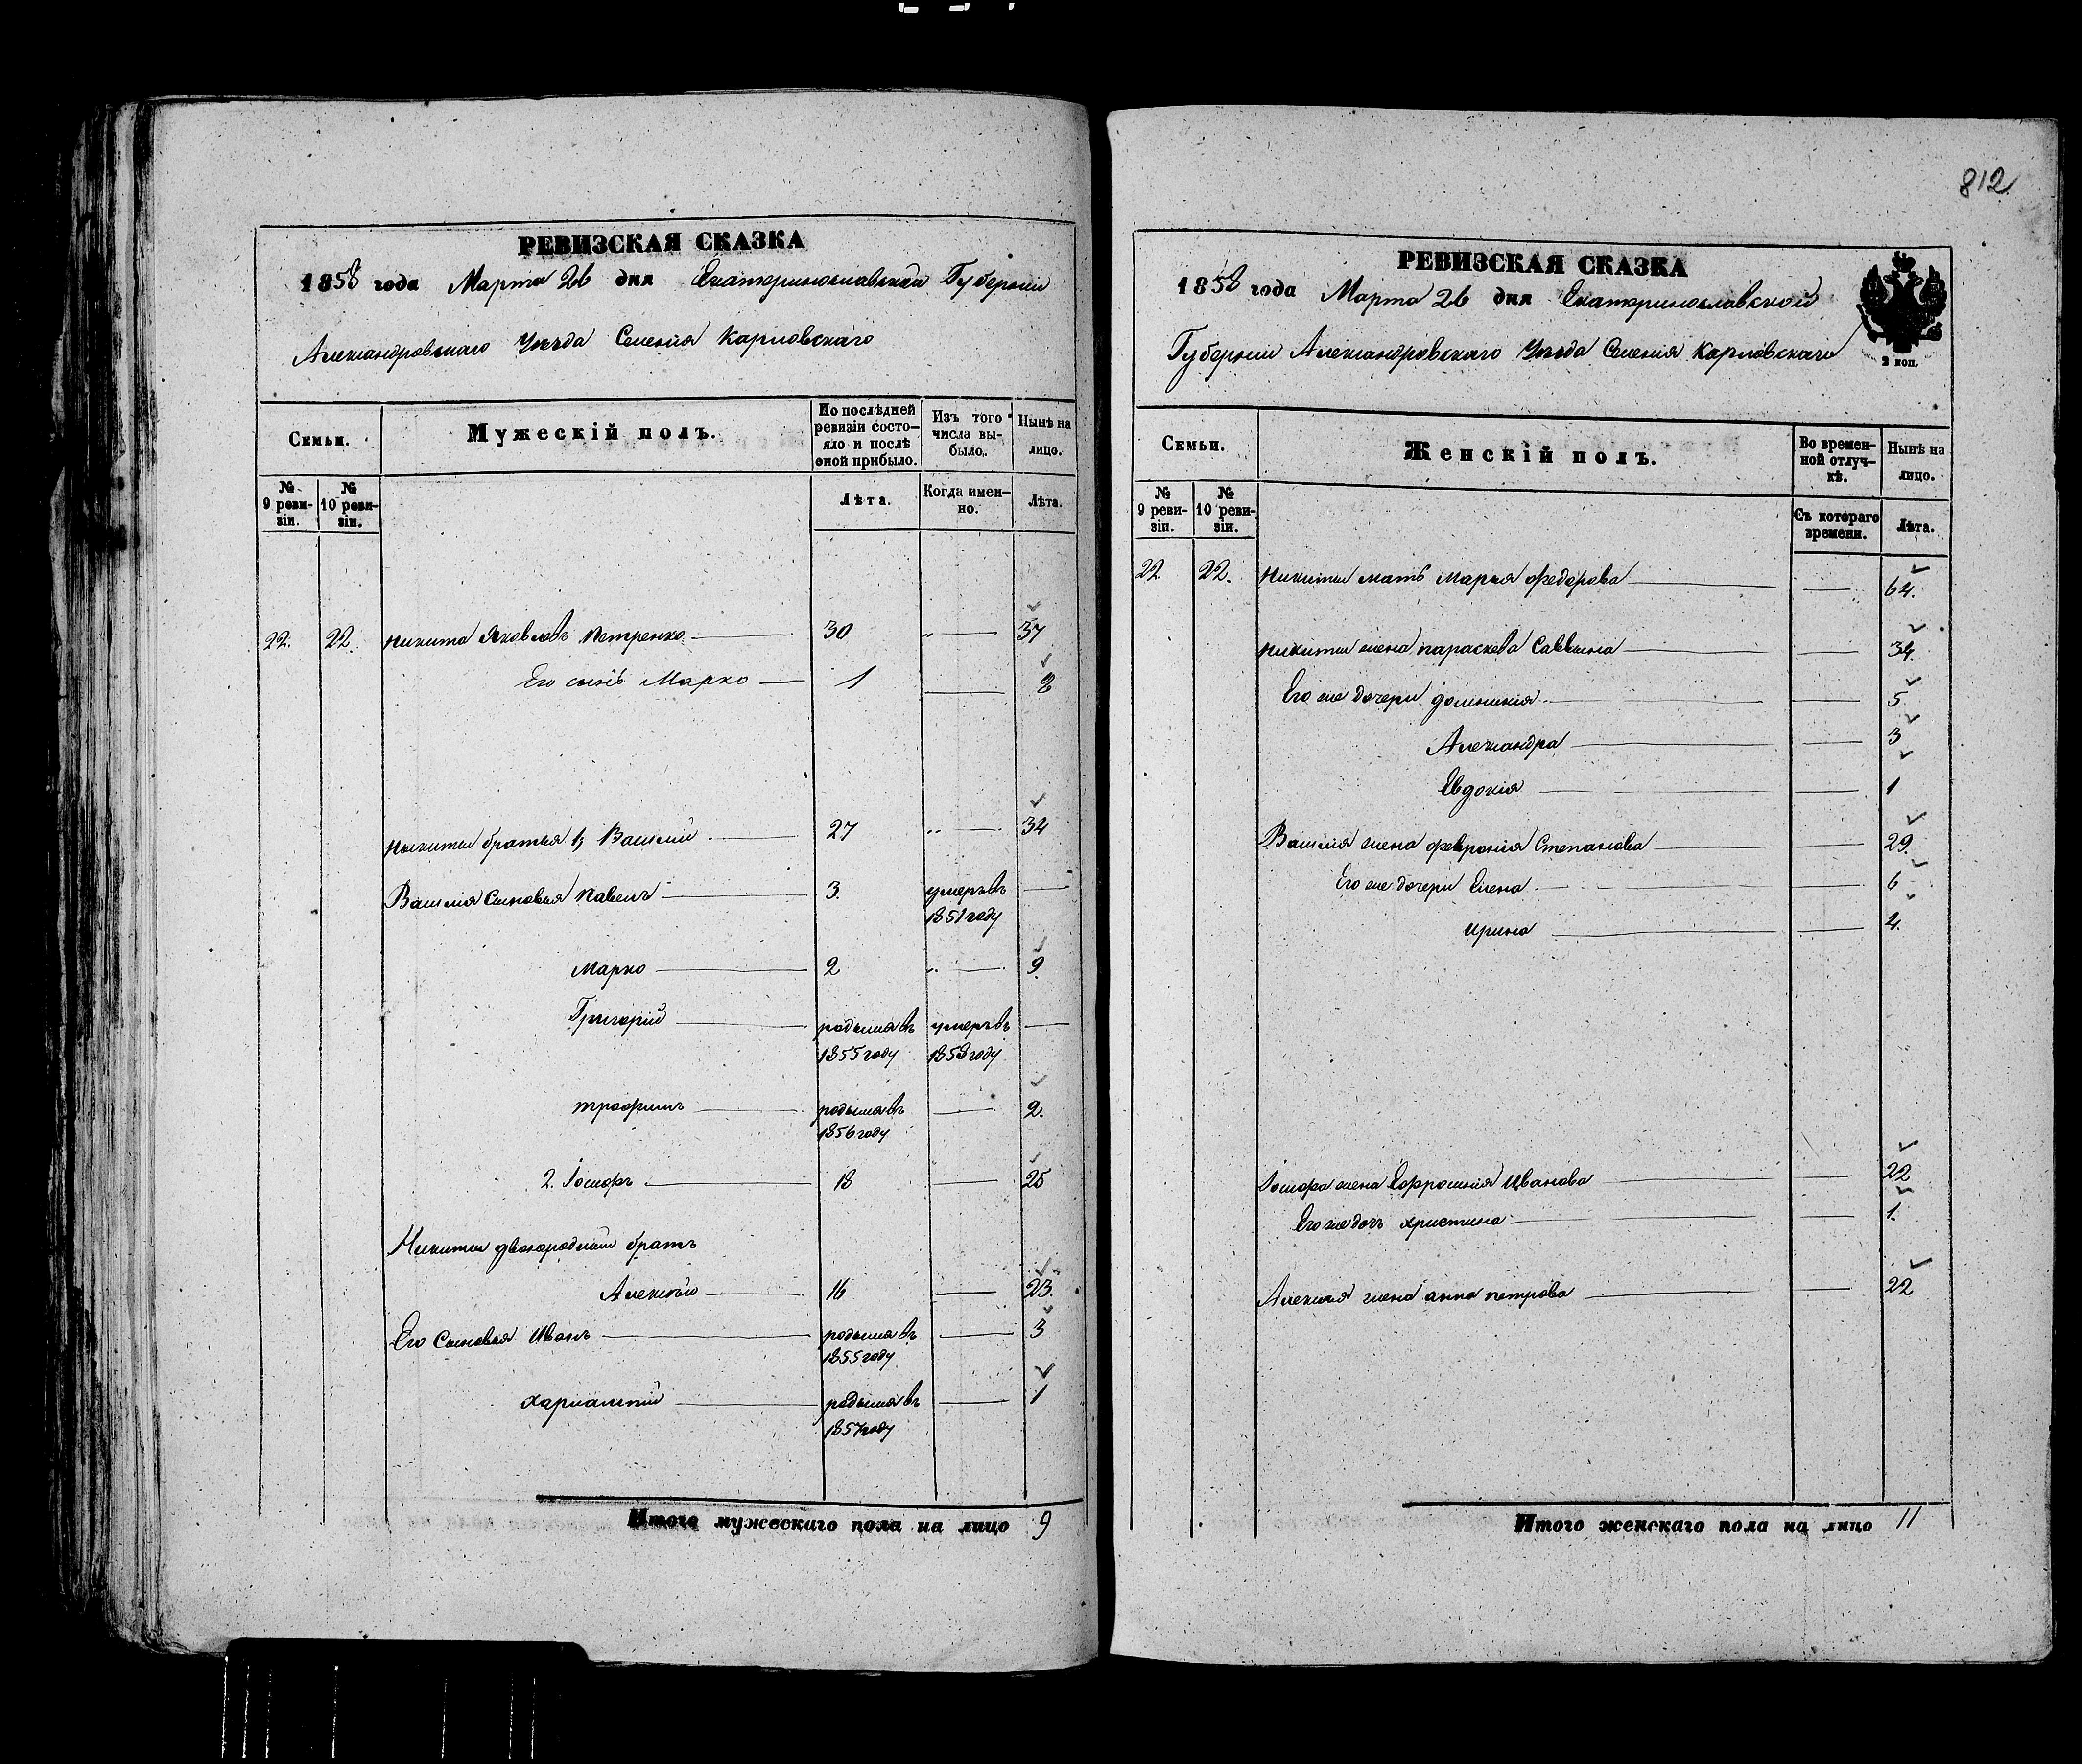 812
РЕВИЗСКАЯ СКАЗКА
1858 года Марта 26 дня Екатеринославской Губерніи
Александровскаго Уѣзда Селенія Карловскаго
Семьи.
Мужескій полъ.
По послѣдней ревизіи состояло и послѣ оной прибыло.
Изъ того числа выбыло.
Нынѣ на лицо.
№ 9 ревизіи.
№ 10 ревизіи.
Лѣта.
Когда именно.
Лѣта.
22. 22. Никита Яковлевъ Петренко 30 " 37
Его сынъ Марко 1 8
Никиты братья 1, Василій 27 " 34
Василія Сыновья Павелъ 3. умеръ въ
1851 году
Марко 2 " 9.
Григорій родился въ умеръ въ
1855 году 1858 году
Трофимъ родился въ 2.
1856 году
2. Іосифъ 18 25
Никиты двоюродный братъ
Алексѣй 16 23.
Его Сыновья Иванъ родился въ 3
1855 году
Харлампій родился въ 1
1857 году
Итого мужескаго пола на лицо 9
РЕВИЗСКАЯ СКАЗКА
1858 года Марта 26 дня Екатеринославской
Губерніи Александровскаго Уѣзда Селенія Карловскаго
2 коп.
Семьи.
Женскій полъ.
Во временной отлучкѣ.
Нынѣ на лицо.
№ 9 ревизіи.
№ 10 ревизіи.
Съ котораго времени.
Лѣта.
22. 22. Никиты мать Марья Федорова 64.
Никиты жена Параскева Саввина 34.
Его же дочери Домникія 5
Александра 3
Евдокія 1
Василія жена Февронія Степанова 29.
Его же дочери Елена 6
Ирина 4.
Іосифа жена Ефросинія Иванова 22
Его же дочь Христина 1.
Алексѣя жена Анна Петрова 22
Итого женскаго пола на лицо 11